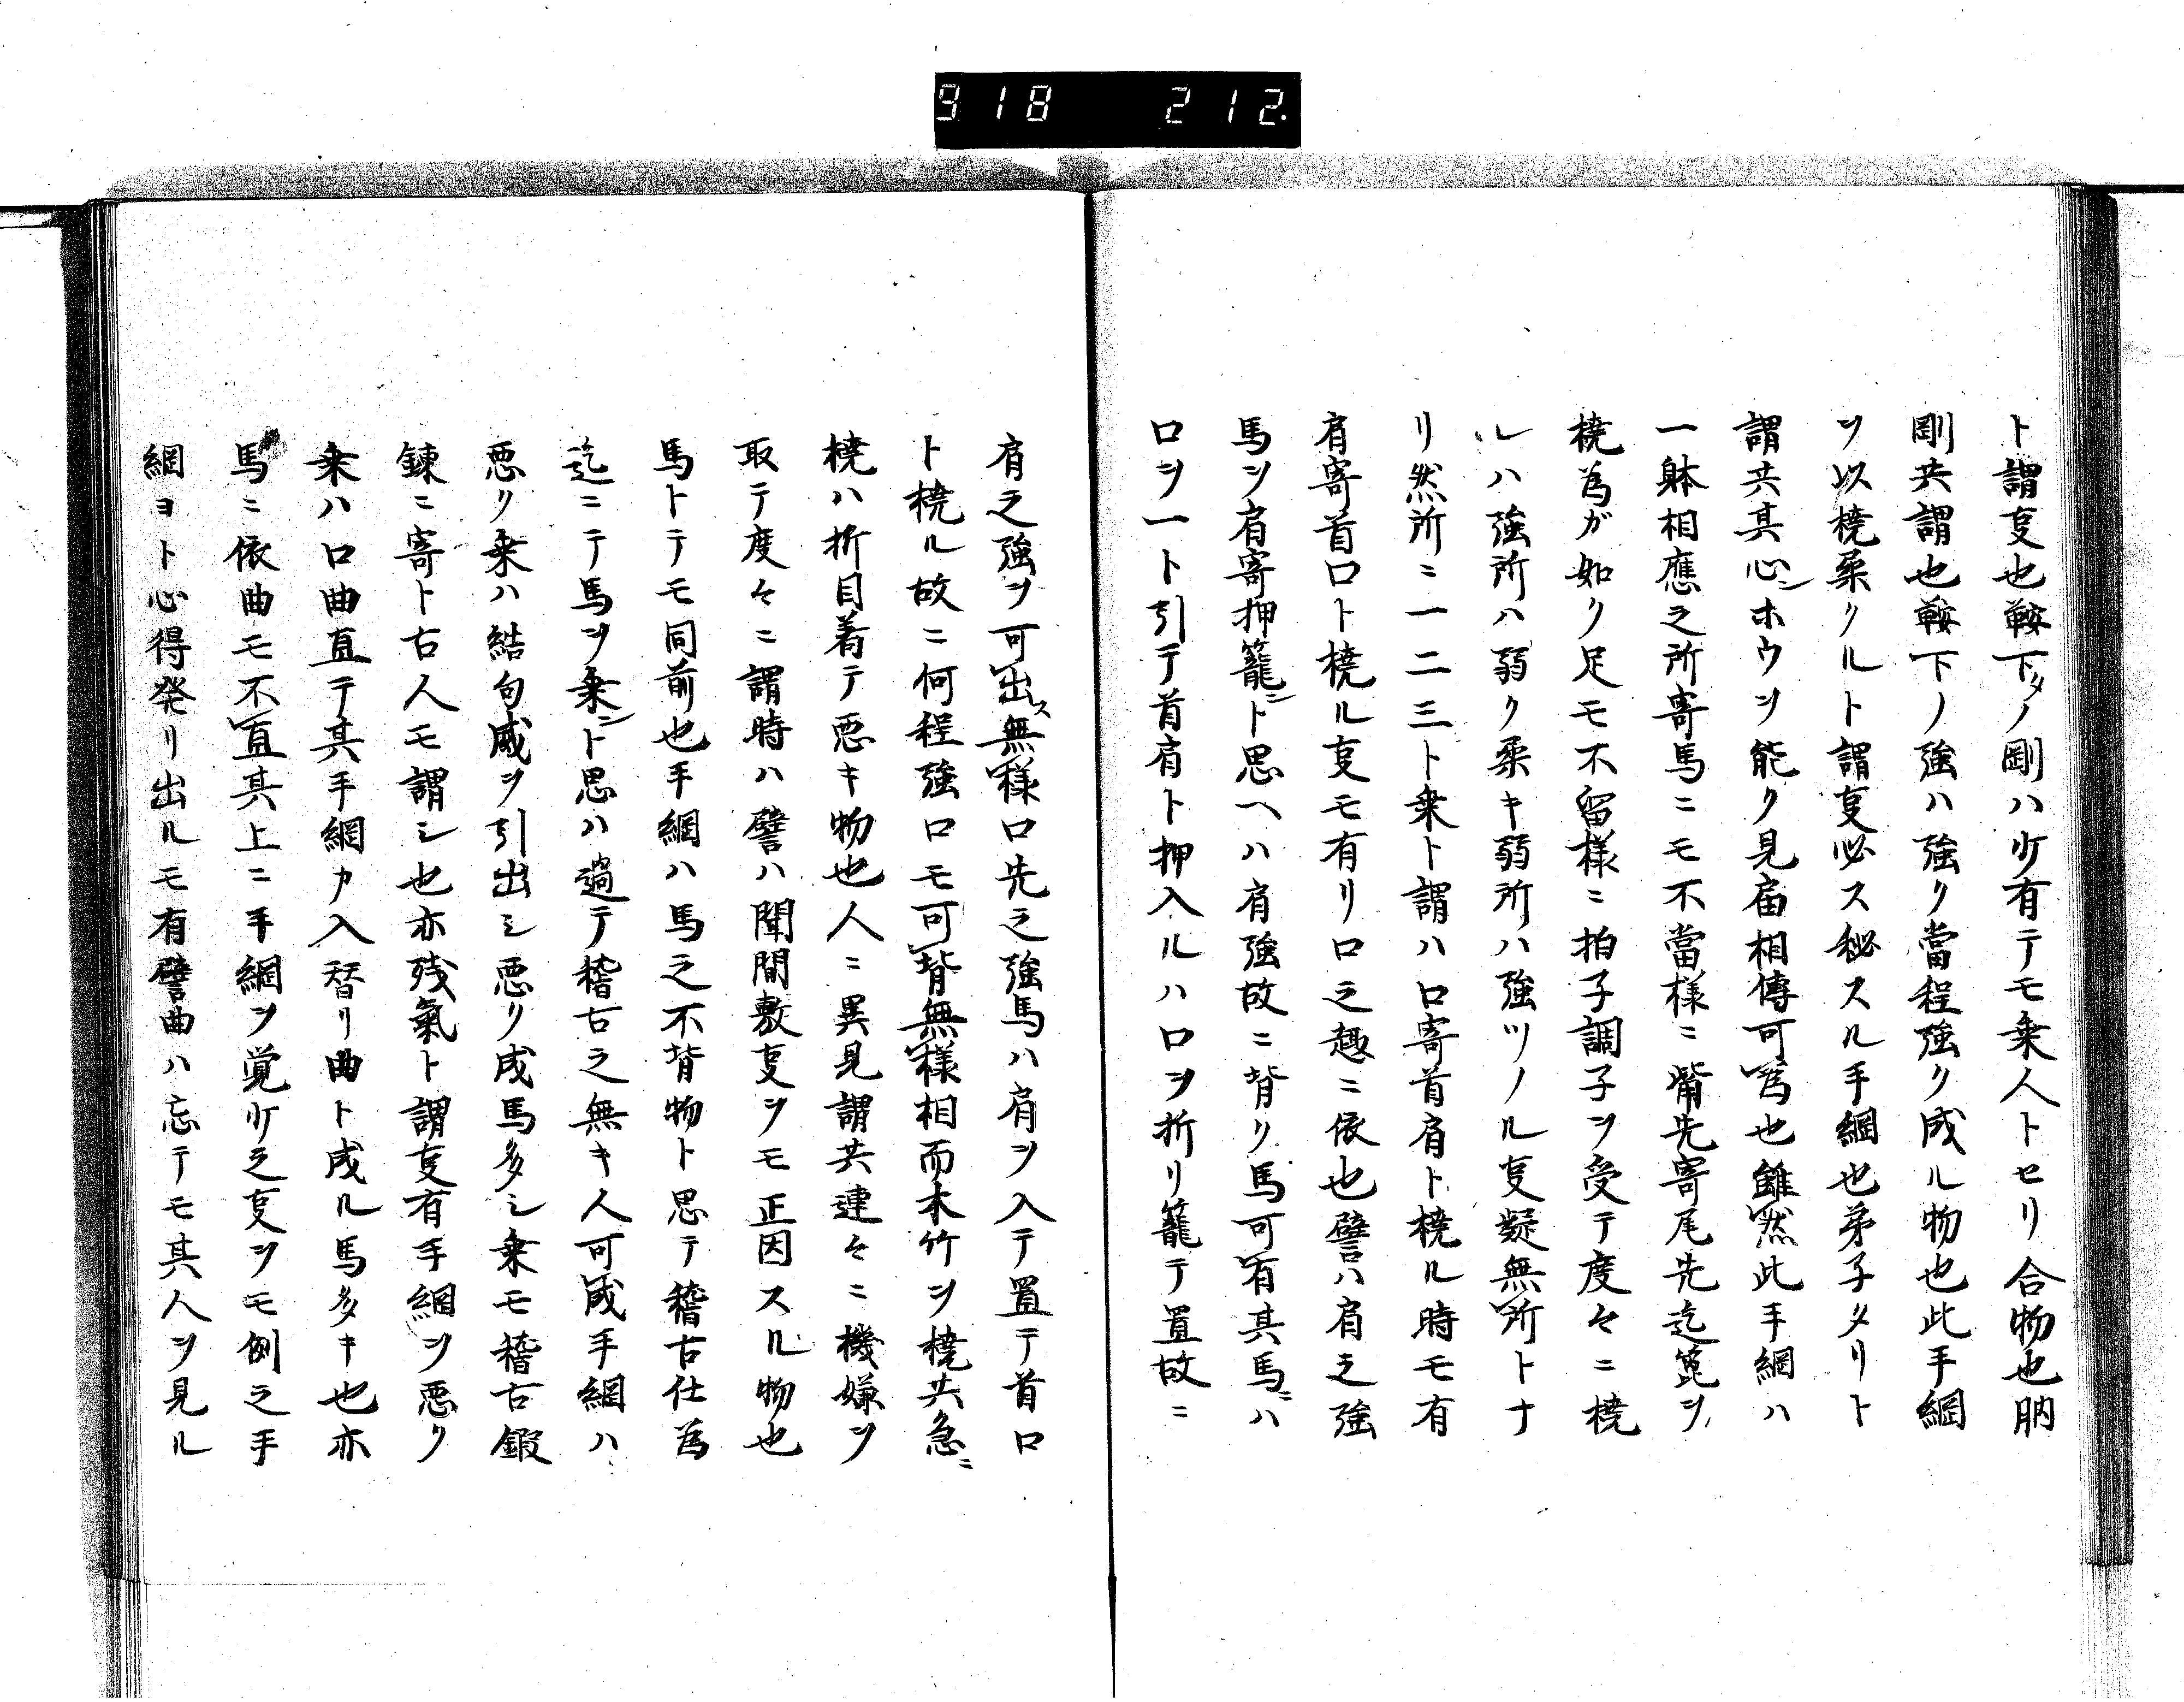 918 212.
ト謂㕝也鞍下タノ剛ハ少有テモ乗人トセリ合物也肭
剛共謂也鞍下ノ強ハ強ク當程強ク成ル物也此手綱
ヲ以橈柔クルト謂㕝必ス秘スル手綱也弟子タリト
謂共其心ンホウヲ能ク見届相傳可為也雖然此手綱ハ
一躰相應之所寄馬ニモ不當様ニ觜先寄尾先迄箆ヲ
橈為ガ如ク足モ不留様ニ拍子調子ヲ受テ度々ニ橈
レハ強所ハ弱ク柔キ弱所ハ強ツノル㕝疑無所トナ
リ然所ニ一二三ト乗ト謂ハ口寄首肩ト橈ル時モ有
肩寄首口ト橈ル㕝モ有リ口之趣ニ依也譬ハ肩之強
馬ヲ肩寄押籠ニト思ヘハ肩強故ニ背リ馬可有其馬ニハ
口ヲ一ト引テ首肩ト押入ルハ口ヲ折リ籠テ置故ニ
肩之強ヲ可出ス無様口先之強馬ハ肩ヲ入テ置テ首口
ト橈ル故ニ何程強口モ可背無様相而木竹ヲ橈共急ニ
橈ハ折目着テ悪キ物也人ニ異見謂共連々ニ機嫌ヲ
取テ度々ニ謂時ハ譬ハ聞間敷㕝ヲモ正因スル物也
馬トテモ同前也手綱ハ馬之不背物ト思テ稽古仕為
迄ニテ馬ヲ乗ント思ハ過テ稽古之無キ人可成手綱ハ
悪リ乗ハ結句威ヲ引出シ悪リ成馬多シ乗モ稽古鍜
錬ニ寄ト古人モ謂シ也亦残氣ト謂㕝有手綱ヲ悪ク
乗ハ口曲直テ其手綱カ入替リ曲ト成ル馬多キ也亦
馬ニ依曲モ不直其上ニ手綱ヲ覚少之㕝ヲモ例之手
綱ヨト心得発リ出ルモ有譬曲ハ忘テモ其人ヲ見ル